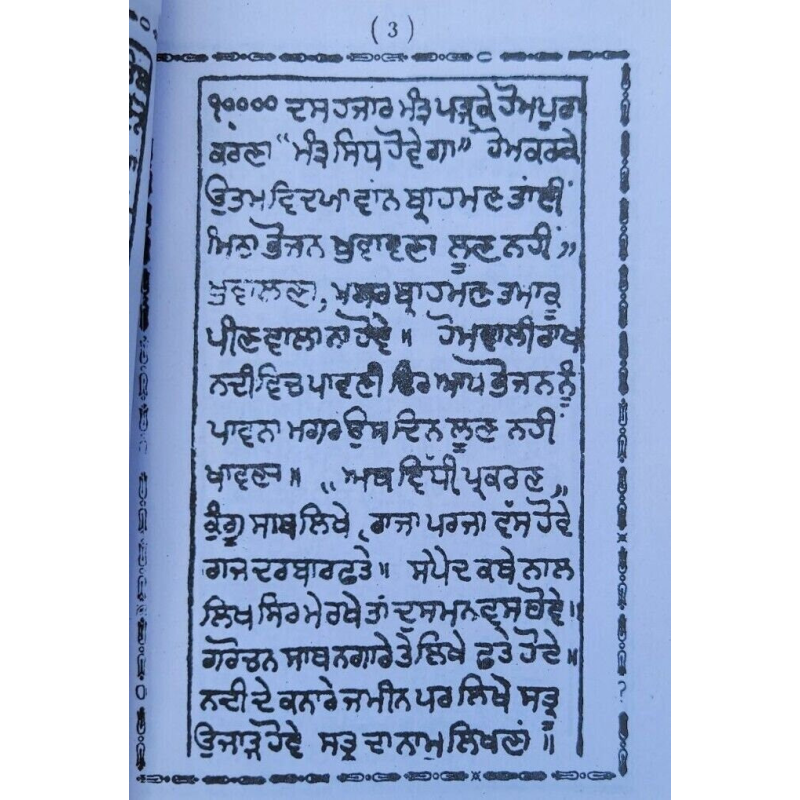 ( 3 )
੧੦੦੦੦ ਦਸ ਹਜਾਰ ਮੰਤ੍ਰ ਪੜ੍ਹਕੇ ਹੋਮ ਪੂਰਾ
ਕਰਣਾ "ਮੰਤ੍ਰ ਸਿਧ ਹੋਵੇਗਾ" ਹੋਮ ਕਰਕੇ
ਉਤਮ ਵਿਦਯਾਵਾਨ ਬ੍ਰਾਹਮਣ ਤਾਂਈਂ
ਮਿਠਾ ਭੋਜਨ ਖੁਵਾਵਣਾ ਲੂਣ ਨਹੀਂ ॥
ਖੁਵਾਲਣਾ, ਬ੍ਰਾਹਮਣ ਤਮਾਕੂ
ਪੀਣ ਵਾਲਾ ਨਾ ਹੋਵੇ ॥ ਹੋਮਵਾਲੀ ਰਾਖ
ਨਦੀ ਵਿਚ ਪਾਵਣੀ ਫਿਰ ਆਪ ਭੋਜਨ ਨੂੰ
ਪਾਵਨਾ ਮਗਰ ਉਸ ਦਿਨ ਲੂਣ ਨਹੀਂ
ਖਾਵਣਾ ॥ "ਅਥ ਵਿੱਧੀ ਪ੍ਰਕਰਣ"
ਕੁੰਗੂ ਸਾਥ ਲਿਖੇ, ਰਾਜਾ ਪਰਜਾ ਵੱਸ ਹੋਵੇ
ਰਾਜ ਦਰਬਾਰ ਫਤੇ ॥ ਸਪੈਦ ਕਥੇ ਨਾਲ
ਲਿਖ ਸਿਰ ਮੇ ਰਖੇ ਤਾਂ ਦੁਸਮਨ ਵਸ ਹੋਵੇ ॥
ਗੋਰੋਚਨ ਸਾਥ ਨਗਾਰੇ ਤੇ ਲਿਖੇ ਫਤੇ ਹੋਵੇ ॥
ਨਦੀ ਦੇ ਕਨਾਰੇ ਜਮੀਨ ਪਰ ਲਿਖੇ ਸਤ੍ਰੂ
ਉਜਾੜ ਹੋਵੇ ਸਤ੍ਰੂ ਦਾ ਨਾਮੁ ਲਿਖਣਾਂ ॥